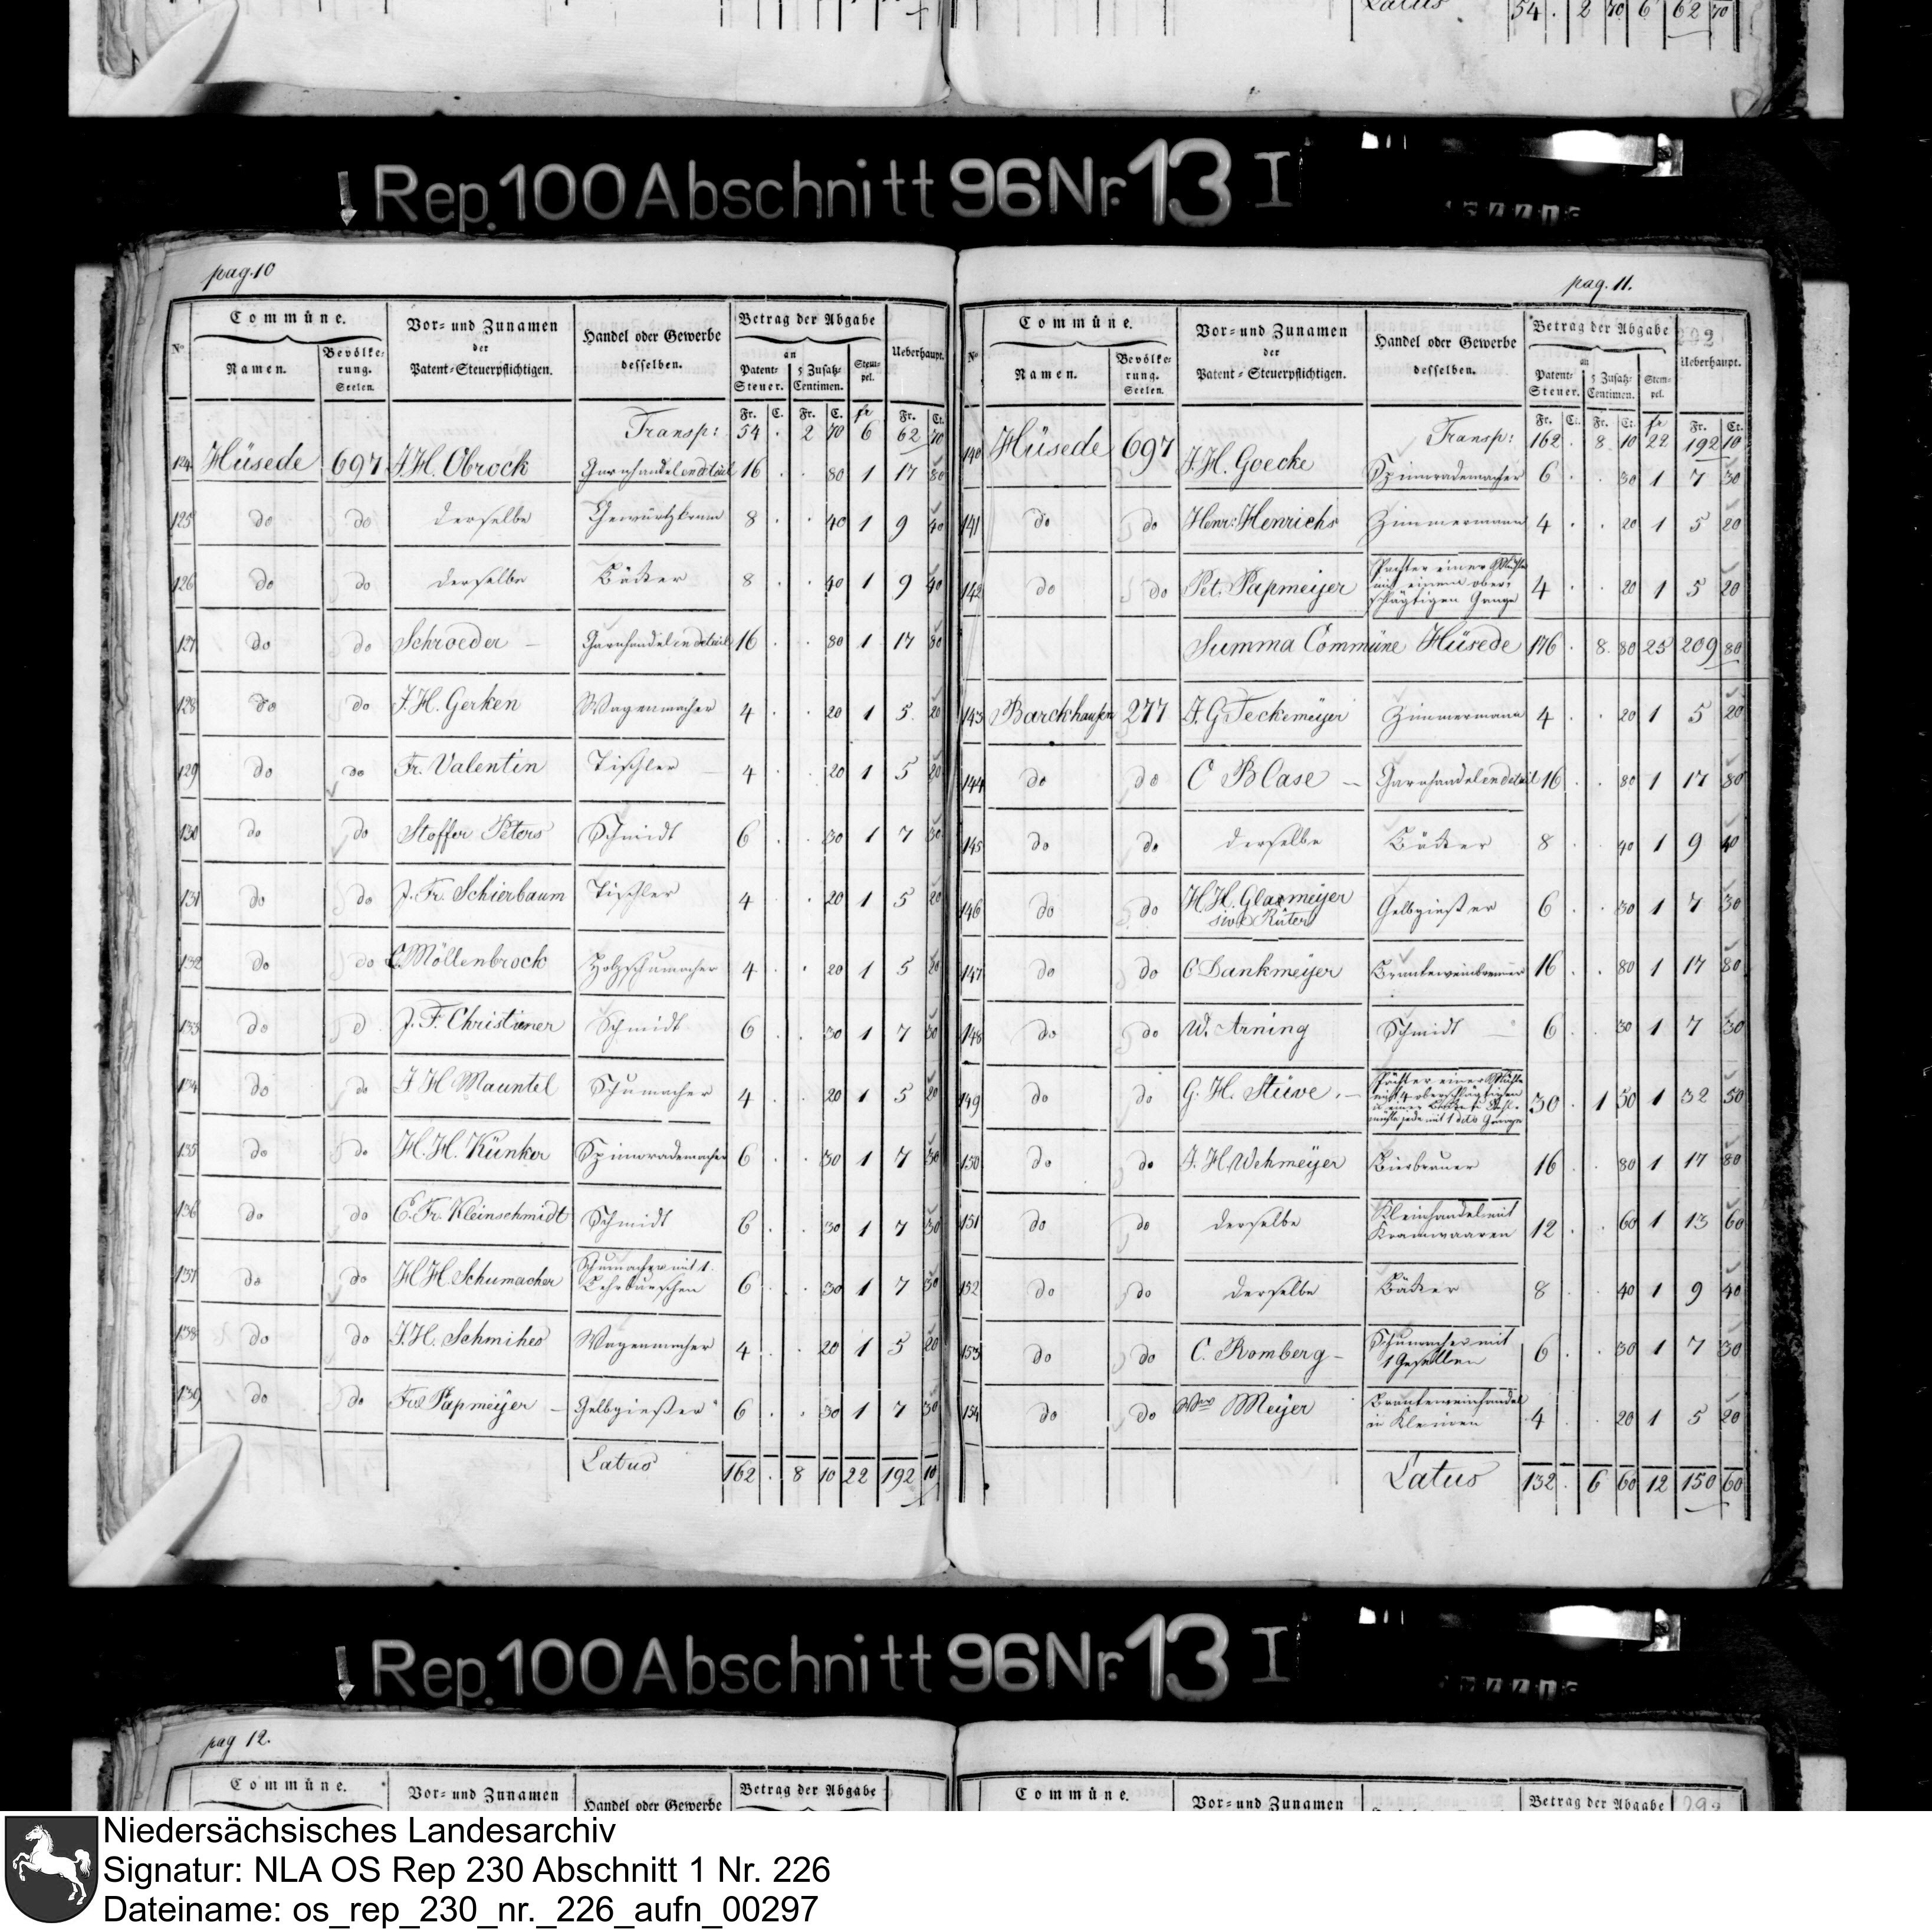 Latus 54 . 2 70 6 62 70
Rep. 100 Abschnitt 96 Nr. 13 I
pag. 10
Commüne.
Vor- und Zunamen
der
Patent-Steuerpflichtigen.
Handel oder Gewerbe
desselben.
Betrag der Abgabe
Ueberhaupt.
No
Namen.
Bevölke-
rung.
Seelen.
an
Patent-
Steuer.
5 Zusatz-
Centimen.
Stem-
pel.
Fr. C. Fr. C. fr Fr. Ct.
Transp: 54 . 2 70 6 62 70
124 Hüsede 697 J.H. Obrock Garnhandel en detail 16 . . 80 1 17 80
125 do do derselbe Gewürtzkram 8 . . 40 1 9 40
126 do do derselbe Bäcker 8 . . 40 1 9 40
127 do do Schroeder – Garnhandel en detail 16 . . 80 1 17 80
128 do do J.H. Gerken Wagenmacher 4 . . 20 1 5 20
129 do do Fr. Valentin Tischler 4 . . 20 1 5 20
130 do do Stoffer Peters Schmidt 6 . . 30 1 7 30
131 do do J. Fr. Schierbaum Tischler 4 . . 20 1 5 20
132 do do C. Möllenbrock Holzschumacher 4 . . 20 1 5 20
133 do d J. F. Christiener Schmidt 6 . . 30 1 7 30
134 do do J H Mauntel Schumacher 4 . . 20 1 5 20
135 do do H. H. Künker Spinnrademacher 6 . . 30 1 7 30
136 do do E. Fr. Kleinschmidt Schmidt 6 . . 30 1 7 30
137 do do H H. Schumacher Schumacher mit 1.
Lehrburschen 6 . . 30 1 7 30
138 do do J. H. Schmihes Wagenmacher 4 . . 20 1 5 20
139 do do Papmeijer – Gelbgießer 6 . . 30 1 7 30
Latus 162 . 8 10 22 192 10
pag. 11.
292
Commüne.
Vor- und Zunamen
der
Patent-Steuerpflichtigen.
Handel oder Gewerbe
desselben.
Betrag der Abgabe
Ueberhaupt.
No
Namen.
Bevölke-
rung.
Seelen.
an
Patent-
Steuer.
5 Zusatz-
Centimen.
Stem-
pel.
Fr. C. Fr. Ct. fr Fr. Ct.
Transp: 162 . 8 10 22 192 10
140 Hüsede 697 J. H. Goecke Spinnrademacher 6 . . 30 1 7 30
141 do do Henr: Henrichs Zimmermann 4 . . 20 1 5 20
142 do do Pet. Papmeijer Pachter einer Mühle
mit einem ober-
schlägtigen Gange 4 . . 20 1 5 20
Summa Commüne Hüsede 176 . 8 80 25 209 80
143 Barckhausen 277 J. G Teckemeijer Zimmermann 4 . . 20 1 5 20
144 do do C Blase – Garnhandel en detail 16 . . 80 1 17 80
145 do do derselbe Bäcker 8 . . 40 1 9 40
146 do do H H. Glasmeijer
sive Rüter Gelbgießer 6 . . 30 1 7 30
147 do do C Dankmeijer Branteweinbrenner 16 . . 80 1 17 80
148 do do W. Arning Schmidt – 6 . . 30 1 7 30
149 do do G. H. Stüwe. – Pächter einer Mühle
mit 4 oberschlägtigen
mühle jede mit 1 dito Gange 30 . 1 50 1 32 50
150 do do J. H. Wehmeijer Bierbrauer 16 . . 80 1 17 80
151 do do derselbe Kleinhandel mit
Kramwaaren 12 . . 60 1 13 60
152 do do derselbe Bäcker 8 . . 40 1 9 40
153 do do C. Romberg – Schumacher mit
1 Gesellen 6 . . 30 1 7 30
154 do do Wwe Meijer Branteweinhandel
in Kleinen 4 . . 20 1 5 20
Latus 132 . 6 60 12 150 60
Rep. 100 Abschnitt 96 Nr. 13 I
pag 12.
Commüne.
Vor- und Zunamen
Handel oder Gewerbe
Betrag der Abgabe
Commüne.
Vor- und Zunamen
Betrag der Abgabe
293
Niedersächsisches Landesarchiv
Signatur: NLA OS Rep 230 Abschnitt 1 Nr. 226
Dateiname: os_rep_230_nr._226_aufn_00297